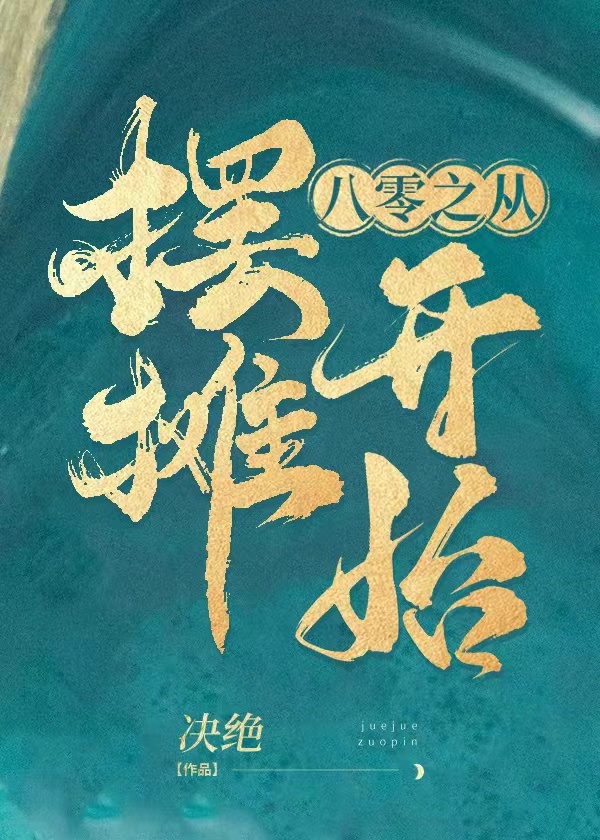 八零之从
摆摊
开始
决绝
【作品】
juejue
zuopin